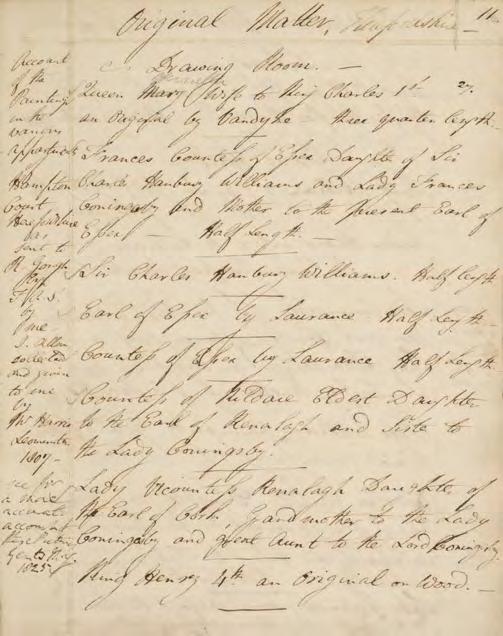 Original Matter, Herefordshire — 11
Drawing Room. —
Queen Mary Wife to King Charles 1st
an Original by Vandyke — three quarter length.
Frances Countess of Essex Daughter of Sir
Charles Hanbury Williams and Lady Frances
Coningsby and Mother to the present Earl of
Essex — Half Length. —
Sir Charles Hanbury Williams. Half length
Earl of Essex by Laurance Half Length.
Countess of Essex by Laurance Half Length
Countess of Kildare Eldest Daughter
to the Earl of Renalagh and Sister to
the Lady Coningsby.
Lady Vicountess Renalagh Daughter of
the Earl of Cork, Grandmother to the Lady
Coningsby and great Aunt to the Lord Coningsby
King Henry 4th an Original on Wood. —
Account
of the
Paintings
in the
various
appartments
Hampton
Court
Herefordshire
as
sent to
R Gough
Esqr
F.A.S.
by
me
J. Allen
collected
and given
to me
by
Mr Harris
Leominster
1807 —
see for
a more
accurate
account
Gents Mag.
1825